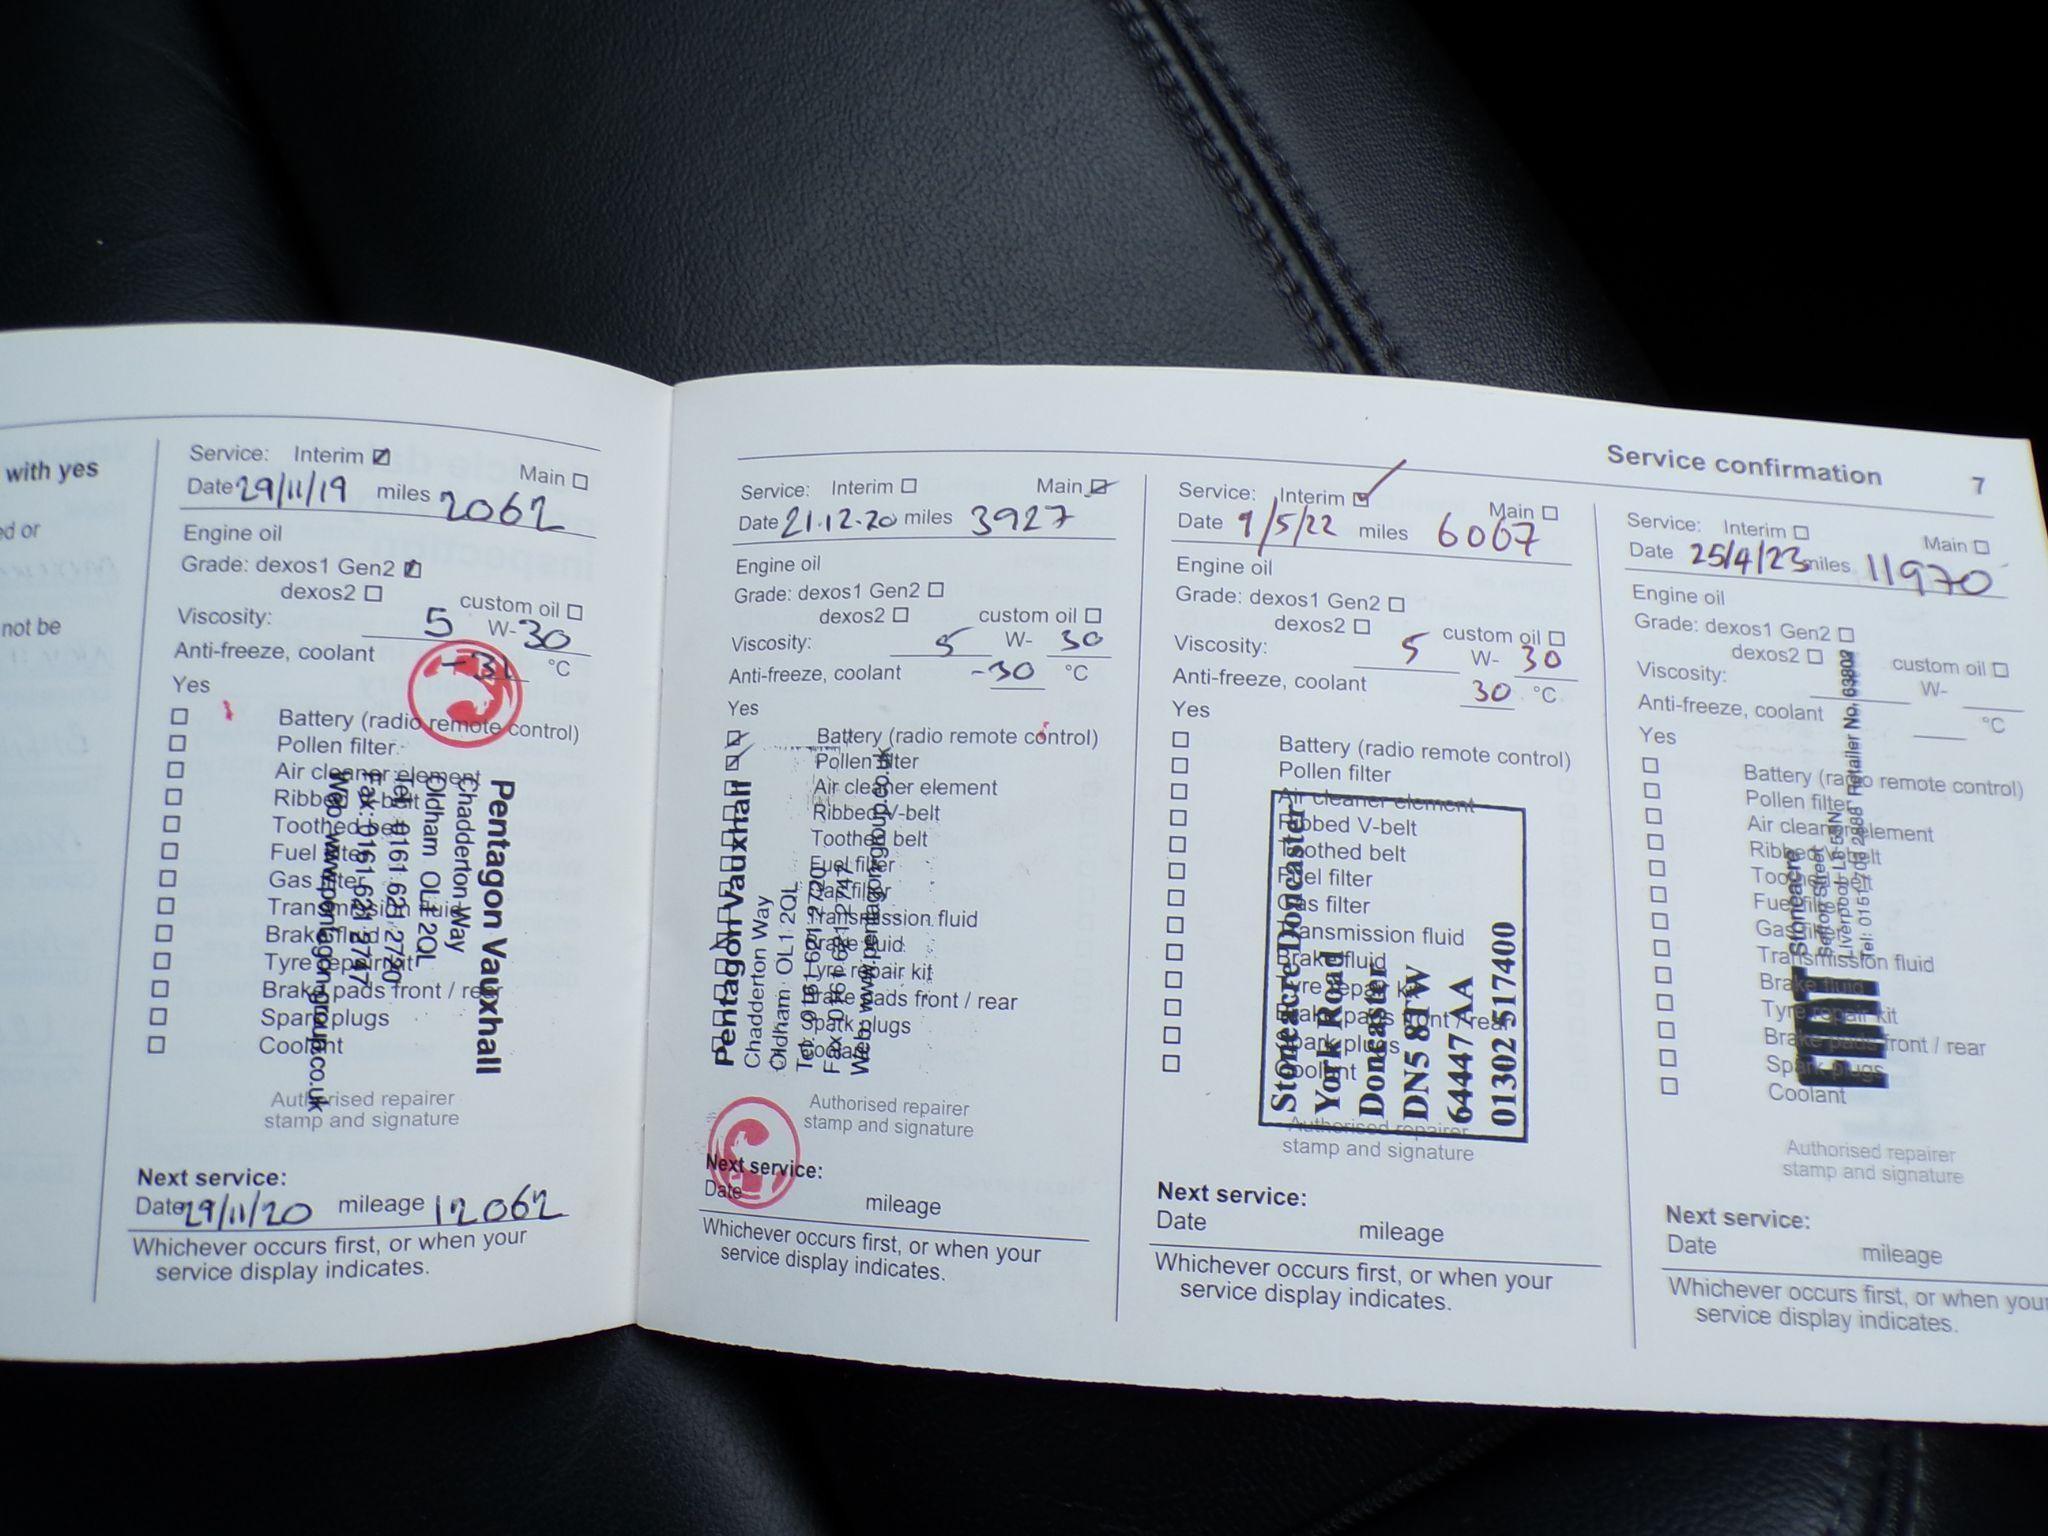 with yes
ed or
not be
Service: Interim Main
Date 29/11/19 miles 2062
Engine oil
Grade: dexos1 Gen2
dexos2 custom oil
Viscosity: 5 W- 30
Anti-freeze, coolant -31 °C
Yes
Battery (radio remote control)
Pollen filter
Air cleaner element
Ribbed V-belt
Toothed belt
Fuel filter
Gas filter
Transmission fluid
Brake fluid
Tyre repair kit
Brake pads front / rear
Spark plugs
Coolant
Pentagon Vauxhall
Chadderton Way
Oldham OL1 2QL
Tel: 0161 621 2720
Fax: 0161 621 2747
Web: www.pentagon-group.co.uk
Authorised repairer
stamp and signature
Next service:
Date 29/11/20 mileage 12062
Whichever occurs first, or when your
service display indicates.
Service confirmation 7
Service: Interim Main
Date 21.12.20 miles 3927
Engine oil
Grade: dexos1 Gen2
dexos2 custom oil
Viscosity: 5 W- 30
Anti-freeze, coolant -30 °C
Yes
Battery (radio remote control)
Pollen filter
Air cleaner element
Ribbed V-belt
Toothed belt
Fuel filter
Gas filter
Transmission fluid
Brake fluid
Tyre repair kit
Brake pads front / rear
Spark plugs
Coolant
Pentagon Vauxhall
Chadderton Way
Oldham OL1 2QL
Tel: 0161 621 2720
Fax: 0161 621 2747
Web: www.pentagongroup.co.uk
Authorised repairer
stamp and signature
Next service:
Date mileage
Whichever occurs first, or when your
service display indicates.
Service: Interim Main
Date 9/5/22 miles 6067
Engine oil
Grade: dexos1 Gen2
dexos2 custom oil
Viscosity: 5 W- 30
Anti-freeze, coolant 30 °C
Yes
Battery (radio remote control)
Pollen filter
Air cleaner element
Ribbed V-belt
Toothed belt
Fuel filter
Gas filter
Transmission fluid
Brake fluid
Tyre repair kit
Brake pads front / rear
Spark plugs
Coolant
Stoneacre Doncaster
York Road
Doncaster
DN5 8TW
64447 AA
01302 517400
Authorised repairer
stamp and signature
Next service:
Date mileage
Whichever occurs first, or when your
service display indicates.
Service: Interim Main
Date 25/4/23 miles 11970
Engine oil
Grade: dexos1 Gen2
dexos2 custom oil
Viscosity: W-
Anti-freeze, coolant °C
Yes
Battery (radio remote control)
Pollen filter
Air cleaner element
Ribbed V-belt
Toothed belt
Fuel filter
Gas filter
Transmission fluid
Brake fluid
Tyre repair kit
Brake pads front / rear
Spark plugs
Coolant
FIAT
Stoneacre
Sefton Street
Liverpool
Retailer No. 63802
Authorised repairer
stamp and signature
Next service:
Date mileage
Whichever occurs first, or when your
service display indicates.